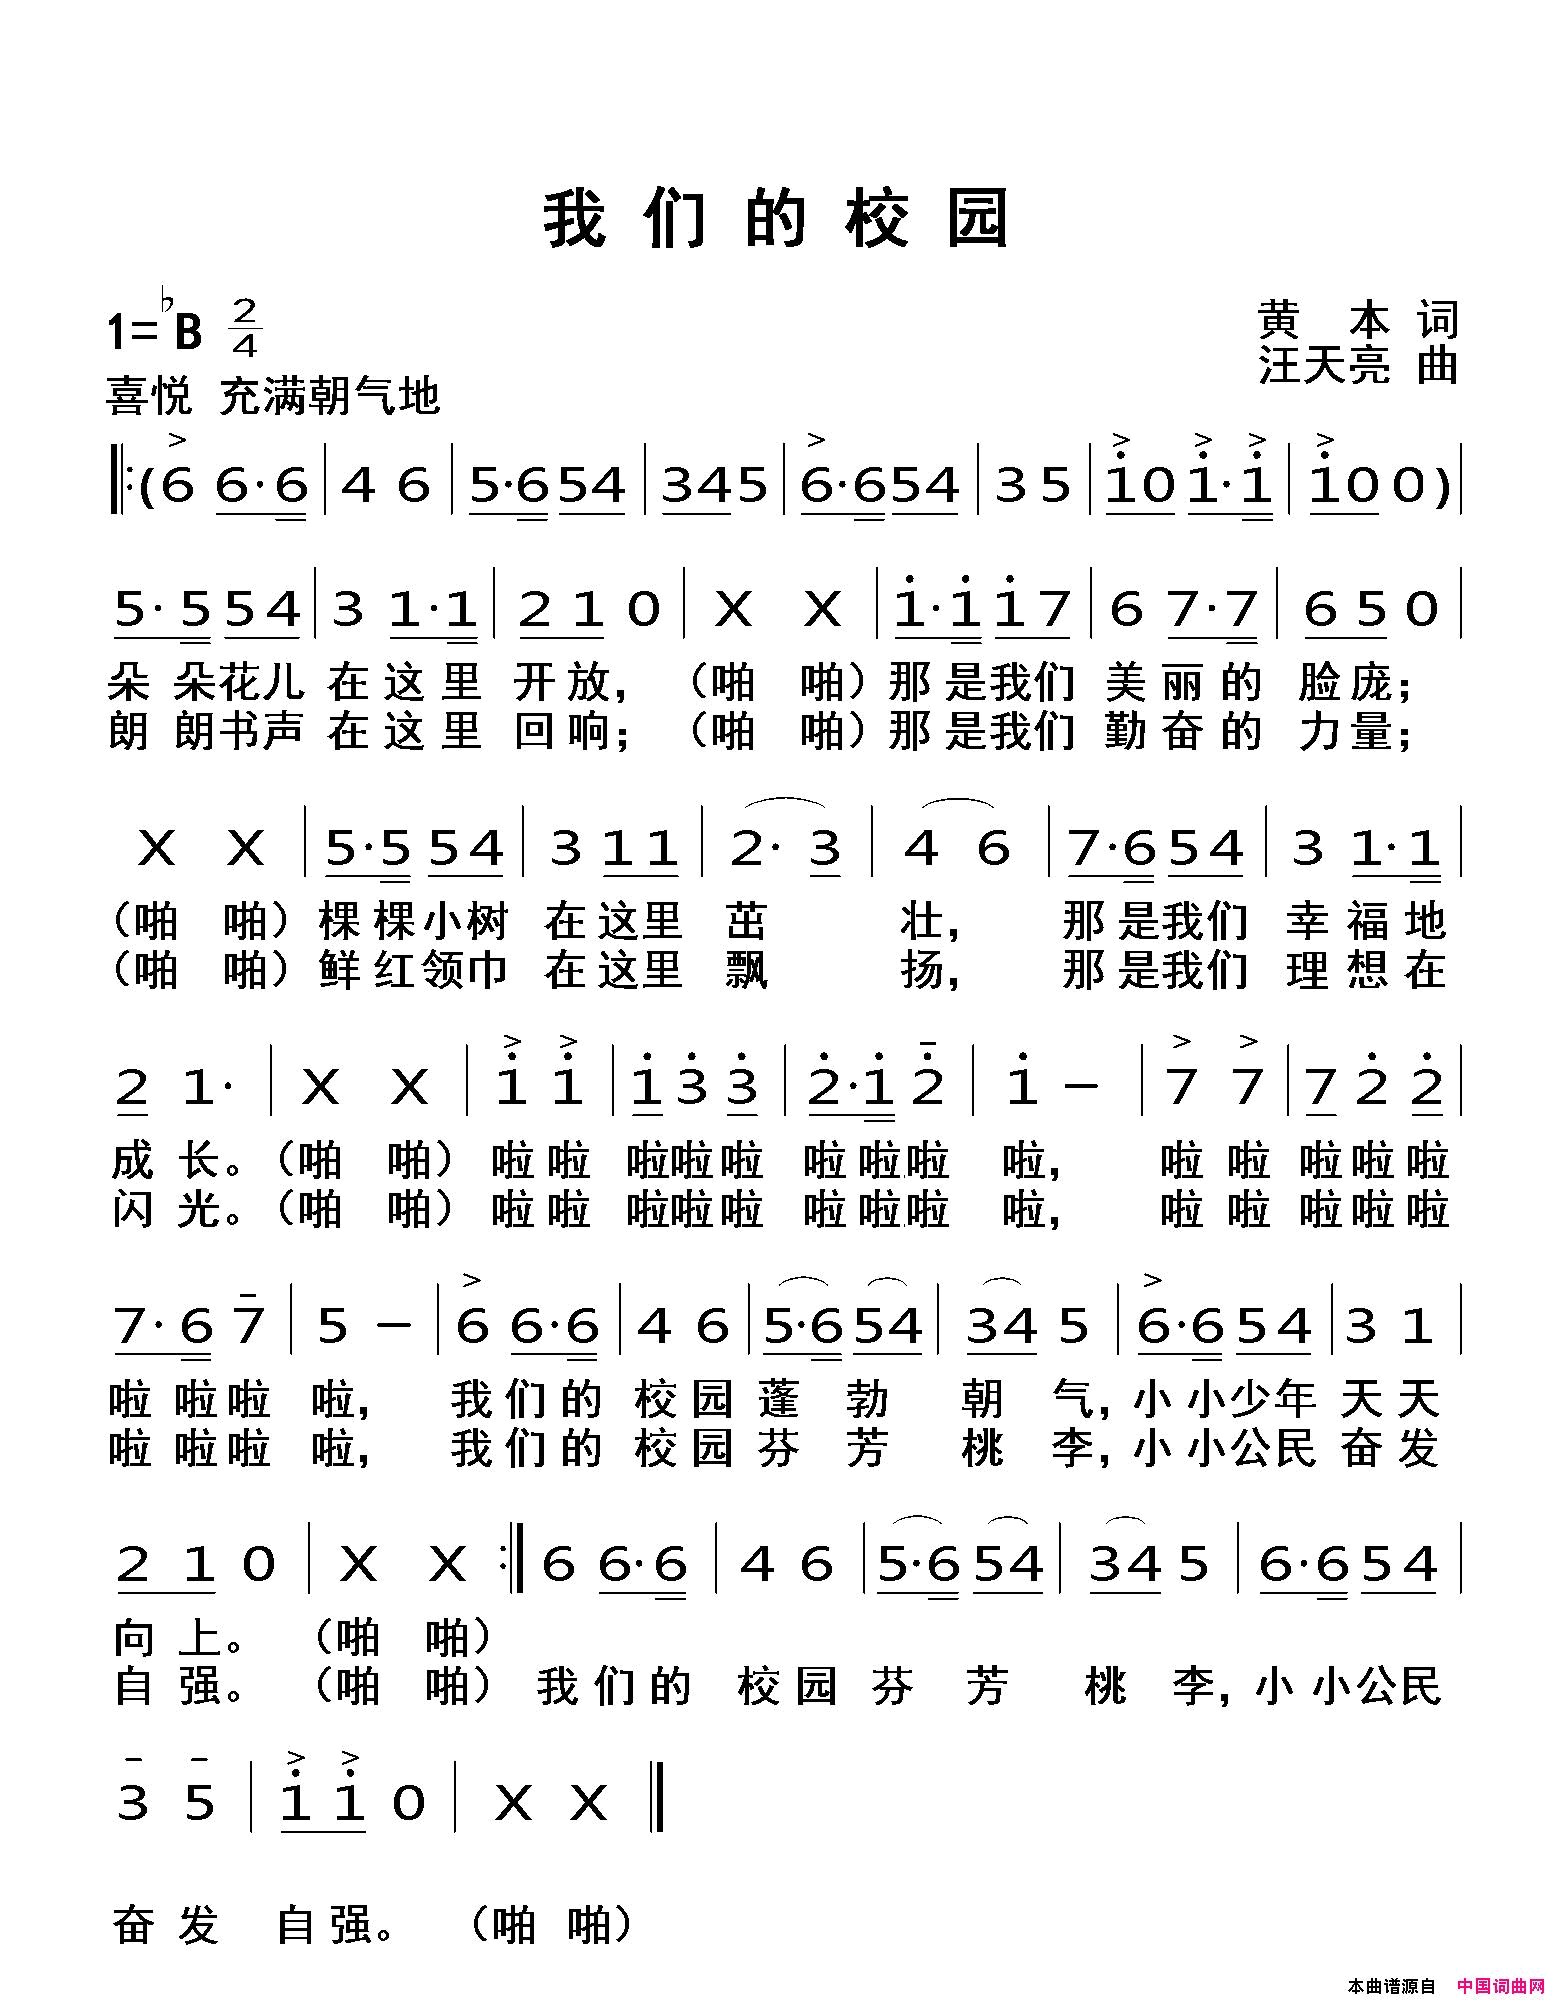 我们的校园
1=♭B 2/4
黄 本 词
汪天亮 曲
喜悦 充满朝气地
‖:(6 6·6|4 6|5·654|345|6·654|35|i0i·i|i00)|
5·554|3 1·1|210|X X|i·ii7|6 7·7|650|
朵朵花儿在这里开放，（啪啪）那是我们美丽的脸庞；
朗朗书声在这里回响；（啪啪）那是我们勤奋的力量；
X X|5·554|311|2·3|4 6|7·654|3 1·1|
（啪啪）棵棵小树在这里茁壮，那是我们幸福地
（啪啪）鲜红领巾在这里飘扬，那是我们理想在
2 1·|X X|i i|i 3̇ 3̇|2̇·i 2̇|i －|7 7|7 2̇ 2̇|
成长。（啪啪）啦啦啦啦啦啦啦啦啦，啦啦啦啦啦
闪光。（啪啪）啦啦啦啦啦啦啦啦啦，啦啦啦啦啦
7·6 7|5 －|6 6·6|4 6|5·654|34 5|6·654|3 1|
啦啦啦啦，我们的校园蓬勃朝气，小小少年天天
啦啦啦啦，我们的校园芬芳桃李，小小公民奋发
2 1 0|X X:‖6 6·6|4 6|5·654|34 5|6·654|
向上。（啪啪）
自强。（啪啪）我们的校园芬芳桃李，小小公民
3 5|i i 0|X X‖
奋发自强。（啪啪）
本曲谱源自 中国词曲网